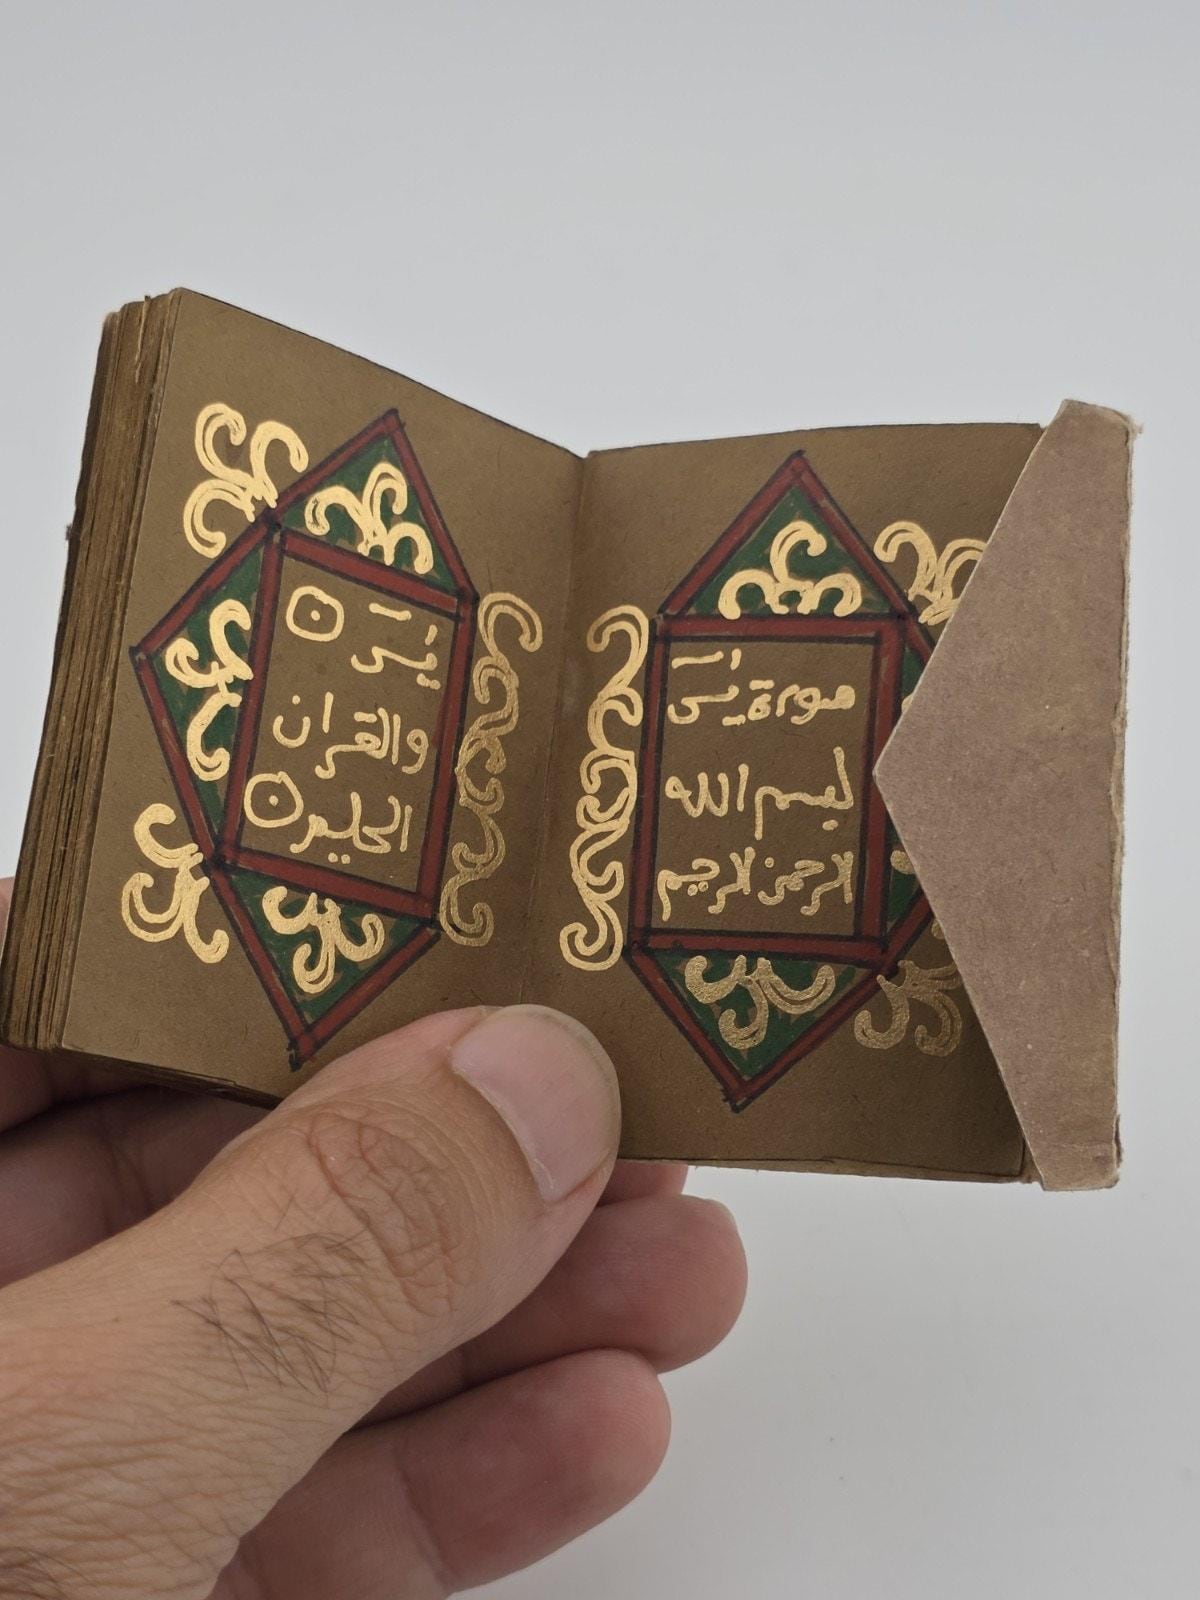 سورة يس
بسم الله
الرحمن الرحيم
يس
والقران
الحكيم